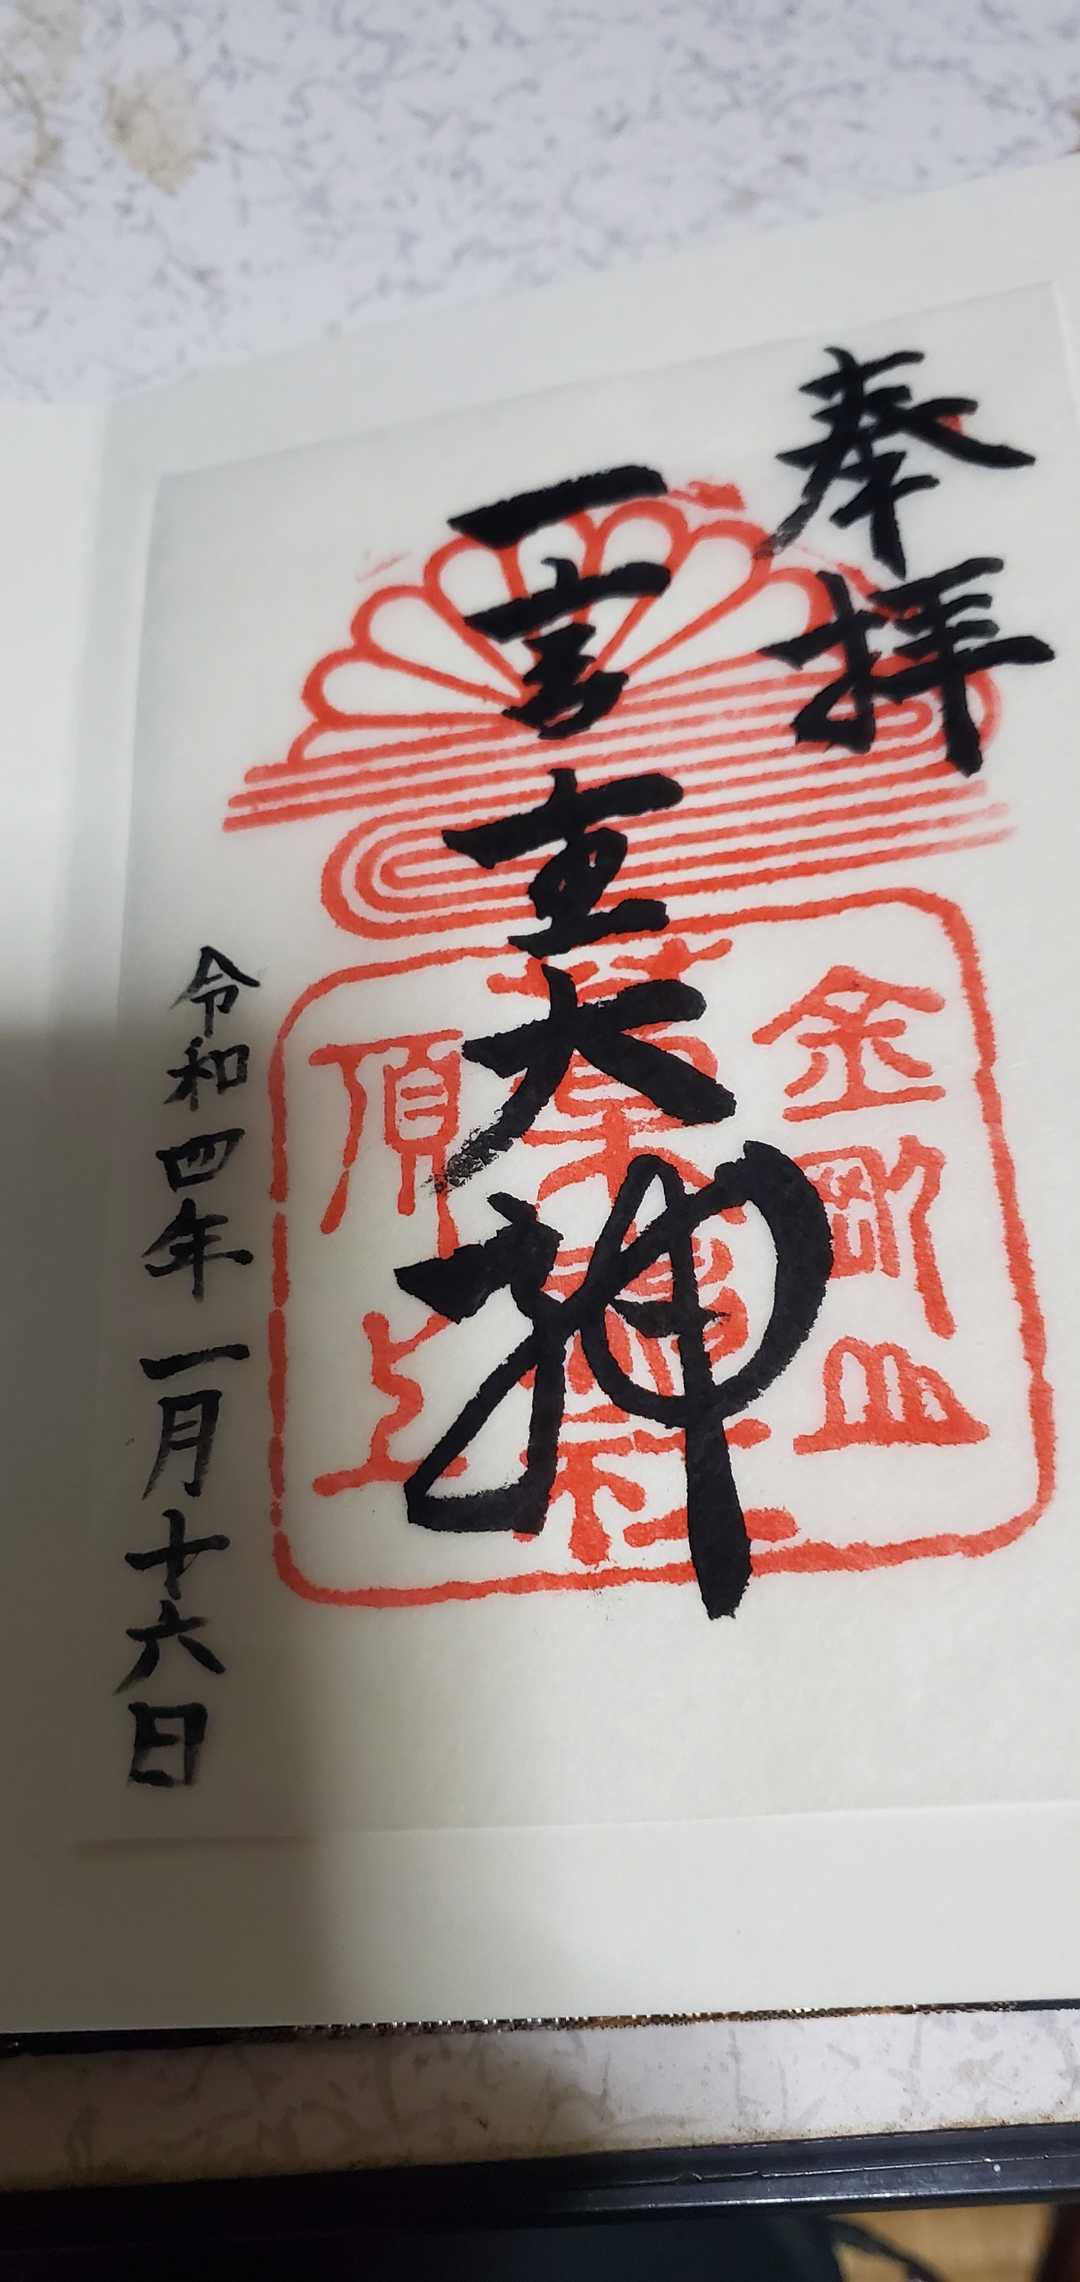 奉拝
一言主大神
金剛山
葛木神社
頂上
令和四年一月十六日